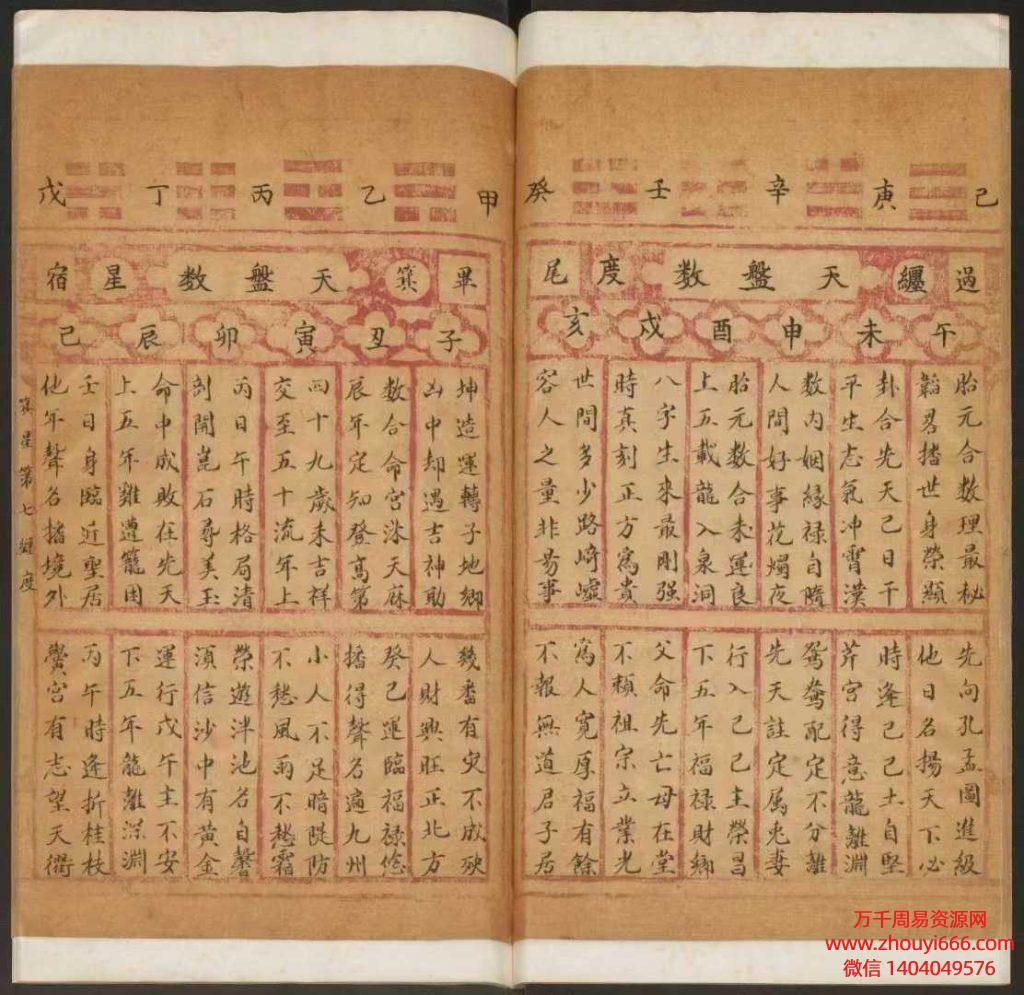 己 庚 辛 壬 癸
過 纏 天盤数 度 尾
午 未 申 酉 戌 亥
胎元合数理最秘
韜畧播世身榮顯
卦合先天己日干
平生志氣冲霄漢
数內姻緣禄自隨
人間好事花燭夜
胎元数合未運良
上五載龍入泉洞
八字生來最剛强
時真刻正方為貴
世間多少路崎嶇
容人之量非易事
先向孔孟圖進級
他日名揚天下必
時逢己己土自堅
芹宮得意龍離淵
鴛鴦配定不分離
先天註定属兎妻
行入己己主榮昌
下五年福禄財鄉
父命先亡母在堂
不賴祖宗立業光
為人寬厚福有餘
不報無道君子居
甲 乙 丙 丁 戊
畢 箕 天盤数 星 宿
子 丑 寅 卯 辰 己
坤造運轉子地鄉
凶中却遇吉神助
数合命宮洙天麻
辰年定知登高第
四十九歲未吉祥
交至五十流年上
丙日午時格局清
剖開崑石尋美玉
命中成敗在先天
上五年雞遭籠困
壬日身臨近聖居
他年聲名播境外
幾番有灾不成殃
人財興旺正北方
癸己運臨福禄悠
播得聲名遍九州
小人不足暗隄防
不愁風雨不愁霜
榮遊泮池名自馨
須信沙中有黃金
運行戊午主不安
下五年龍離深淵
丙午時逢折桂枝
黌宮有志望天衢
箕星第七纏度
万千周易资源网
www.zhouyi666.com
微信 1404049576